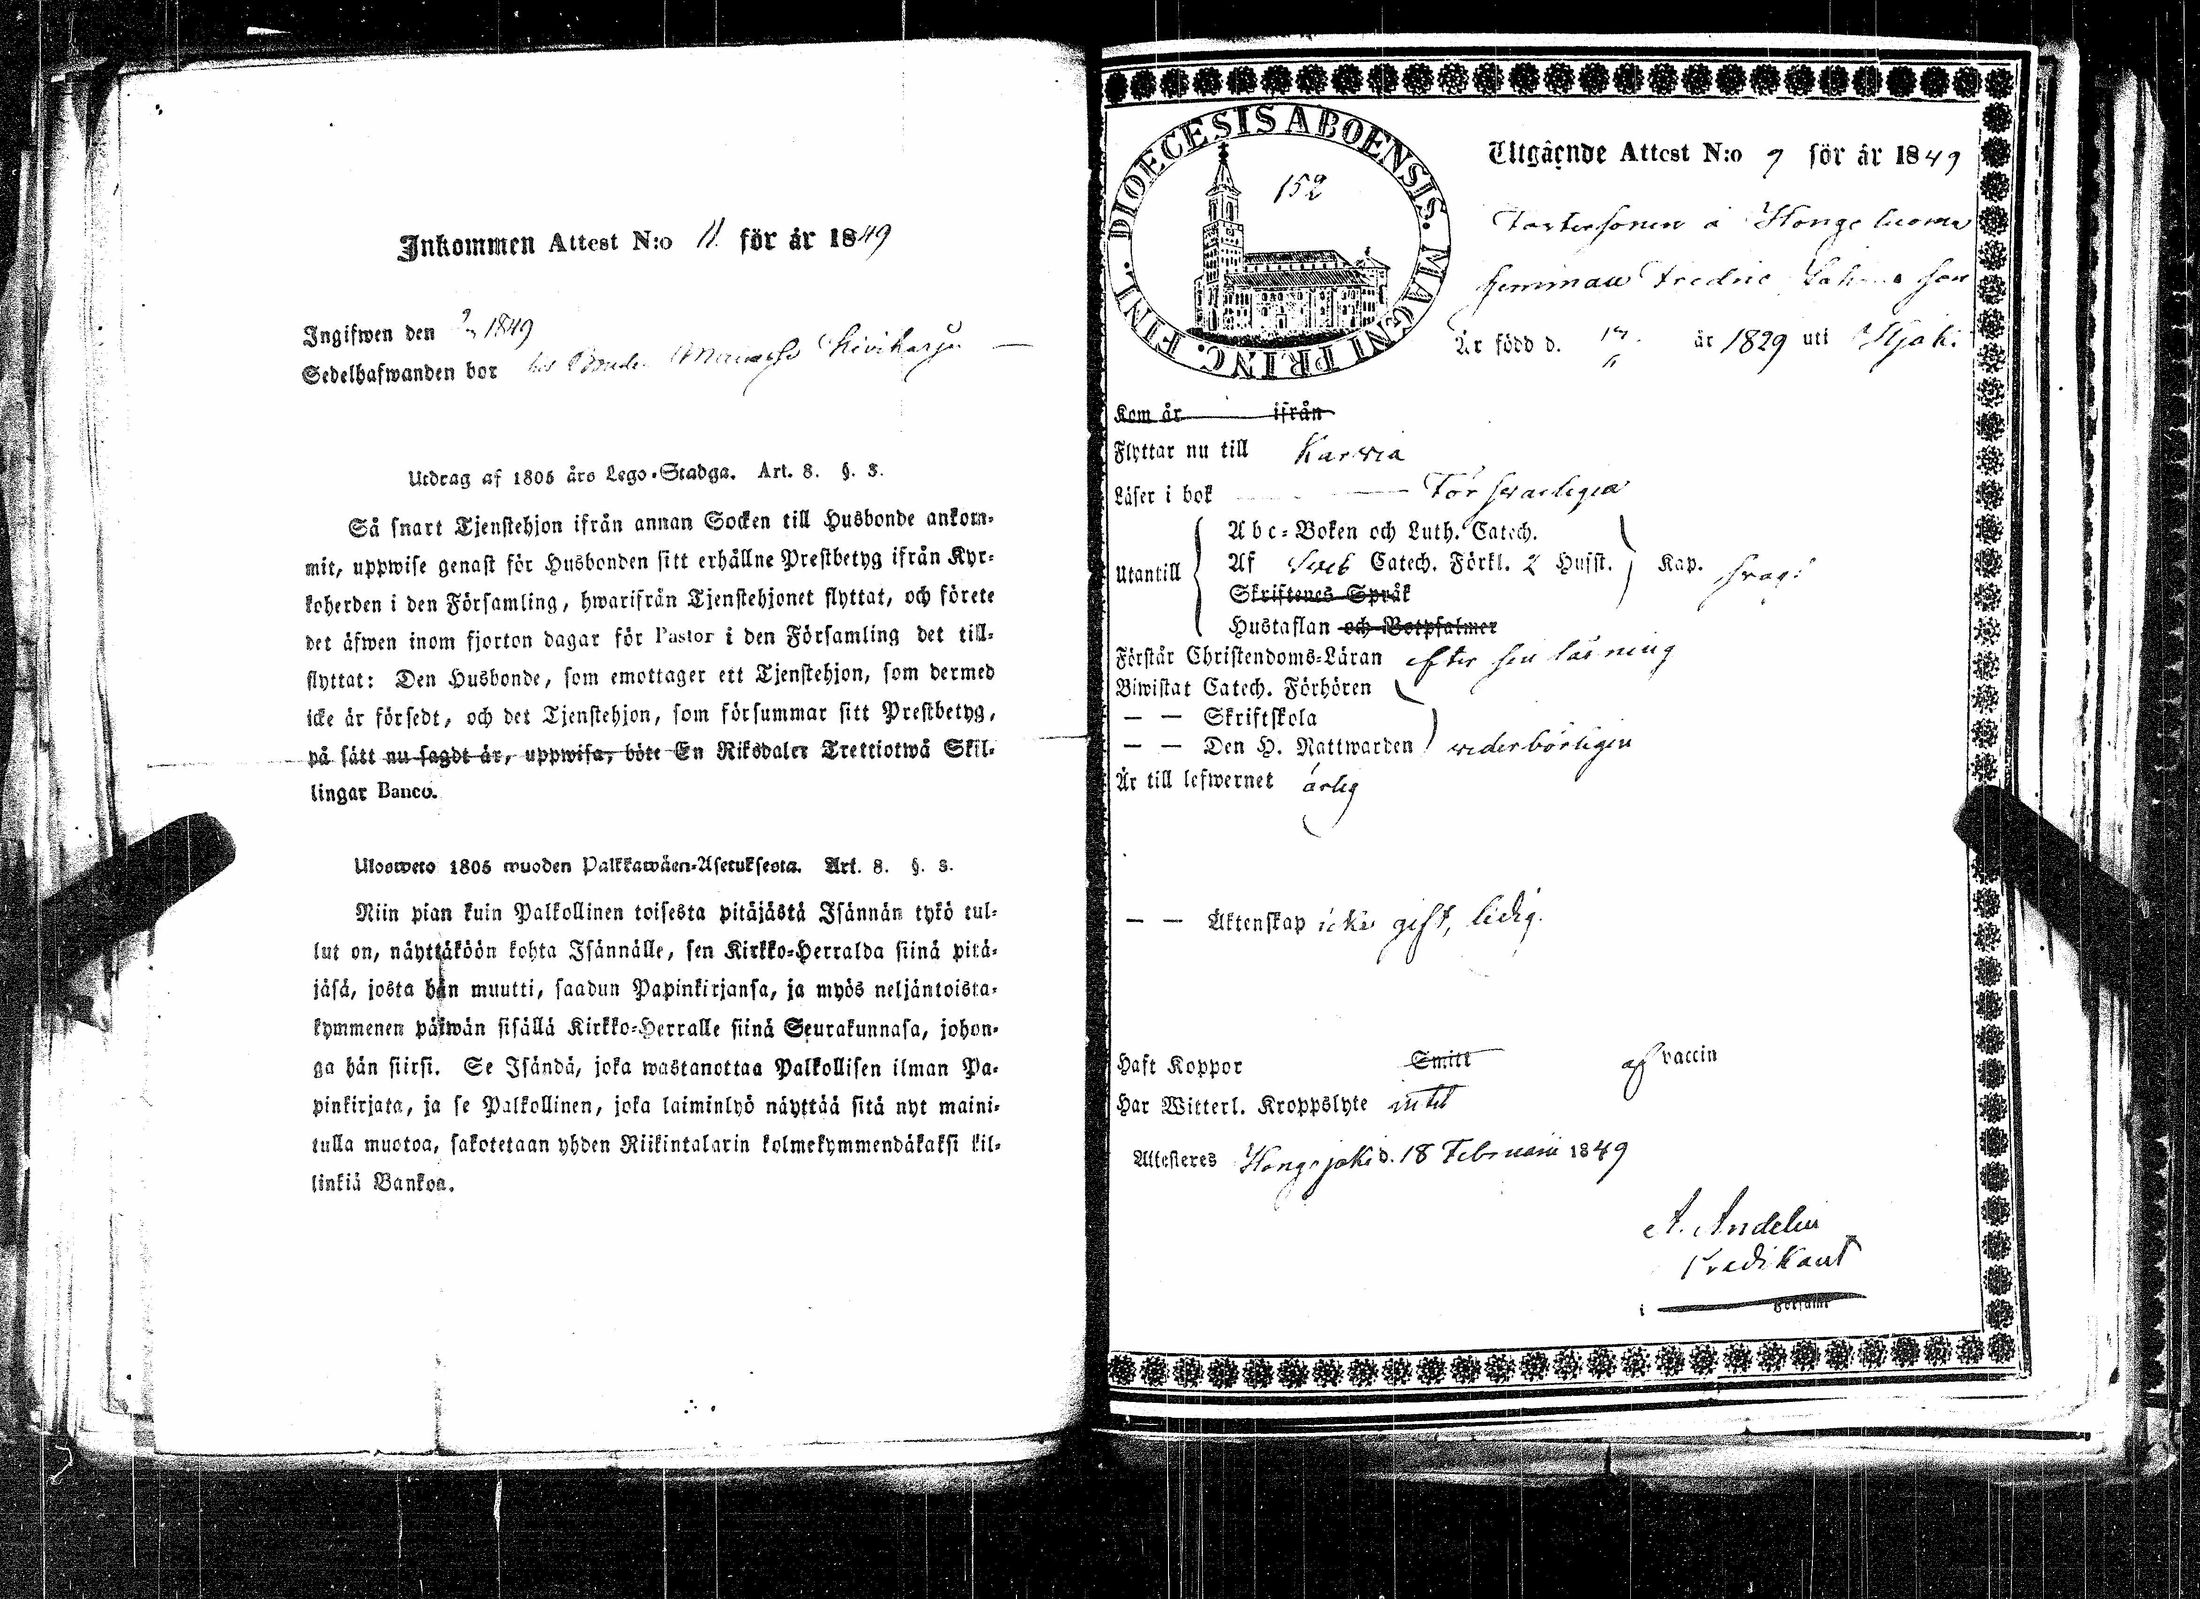 Inkommen Attest N:o 11. för år 1849
Ingifwen den 1849
Sedelhafwanden bor hos Bonden Kiviharju
Utdrag af 1805 års Lego-Stadga. Art. 8. §. 3.
Så snart Tjenstehjon ifrån annan Socken till Husbonde ankom-
mit, uppwise genast för Husbonden sitt erhållne Prestbetyg ifrån Kyr-
koherden i den Församling, hwarifrån Tjenstehjonet flyttat, och förete
det äfwen inom fjorton dagar för Pastor i den Församling det till-
flyttat: Den Husbonde, som emottager ett Tjenstehjon, som dermed
icke är försedt, och det Tjenstehjon, som försummar sitt Prestbetyg,
på sätt nu sagdt är, uppwisa, böte En Riksdaler Trettiotwå Skil-
lingar Banco.
Ulosweto 1805 wuoden Palkkawäen-Asetuksesta. Art. 8. §. 3.
Niin pian kuin Palkollinen toisesta pitäjästä Isännän tykö tul-
lut on, näyttäköön kohta Isännälle, sen Kirkko-Herralda siinä pitä-
jäsä, josta hän muutti, saadun Papinkirjansa, ja myös neljäntoista-
kymmenen päiwän sisällä Kirkko-Herralle siinä Seurakunnasa, johon-
ga hän siirsi. Se Isändä, joka wastanottaa Palkollisen ilman Pa-
pinkirjata, ja se Palkollinen, joka laiminlyö näyttää sitä nyt maini-
tulla muotoa, sakotetaan yhden Riikintalarin kolmekymmendäkaksi kil-
linkiä Bankoa.
DIOECESIS ABOENSIS. MAGNI PRINC. FINL.
152
Utgående Attest N:o 9 för år 1849
å Hongoluoma
hemman Fredric
Är född d. 17 år 1829 uti
Kom år ifrån
Flyttar nu till Karvia
Läser i bok Försvarligen
Utantill
Abc-Boken och Luth. Catech.
Af Sveb Catech. Förkl. 2 Husst. Kap. svagt
Skriftenes Språk
Hustaflan och Botpsalmer
Förstår Christendoms-Läran efter sin läsning
Biwistat Catech. Förhören
— — Skriftskola
— — Den H. Nattwarden vederbörligen
Är till lefwernet ärlig
— — Äktenskap icke gift, ledig.
Haft Koppor Smitt af vaccin
Har Witterl. Kroppslyte intet
Attesteres Hongojoki d. 18 Februarii 1849
A. Andelin
Predikant
i Församl